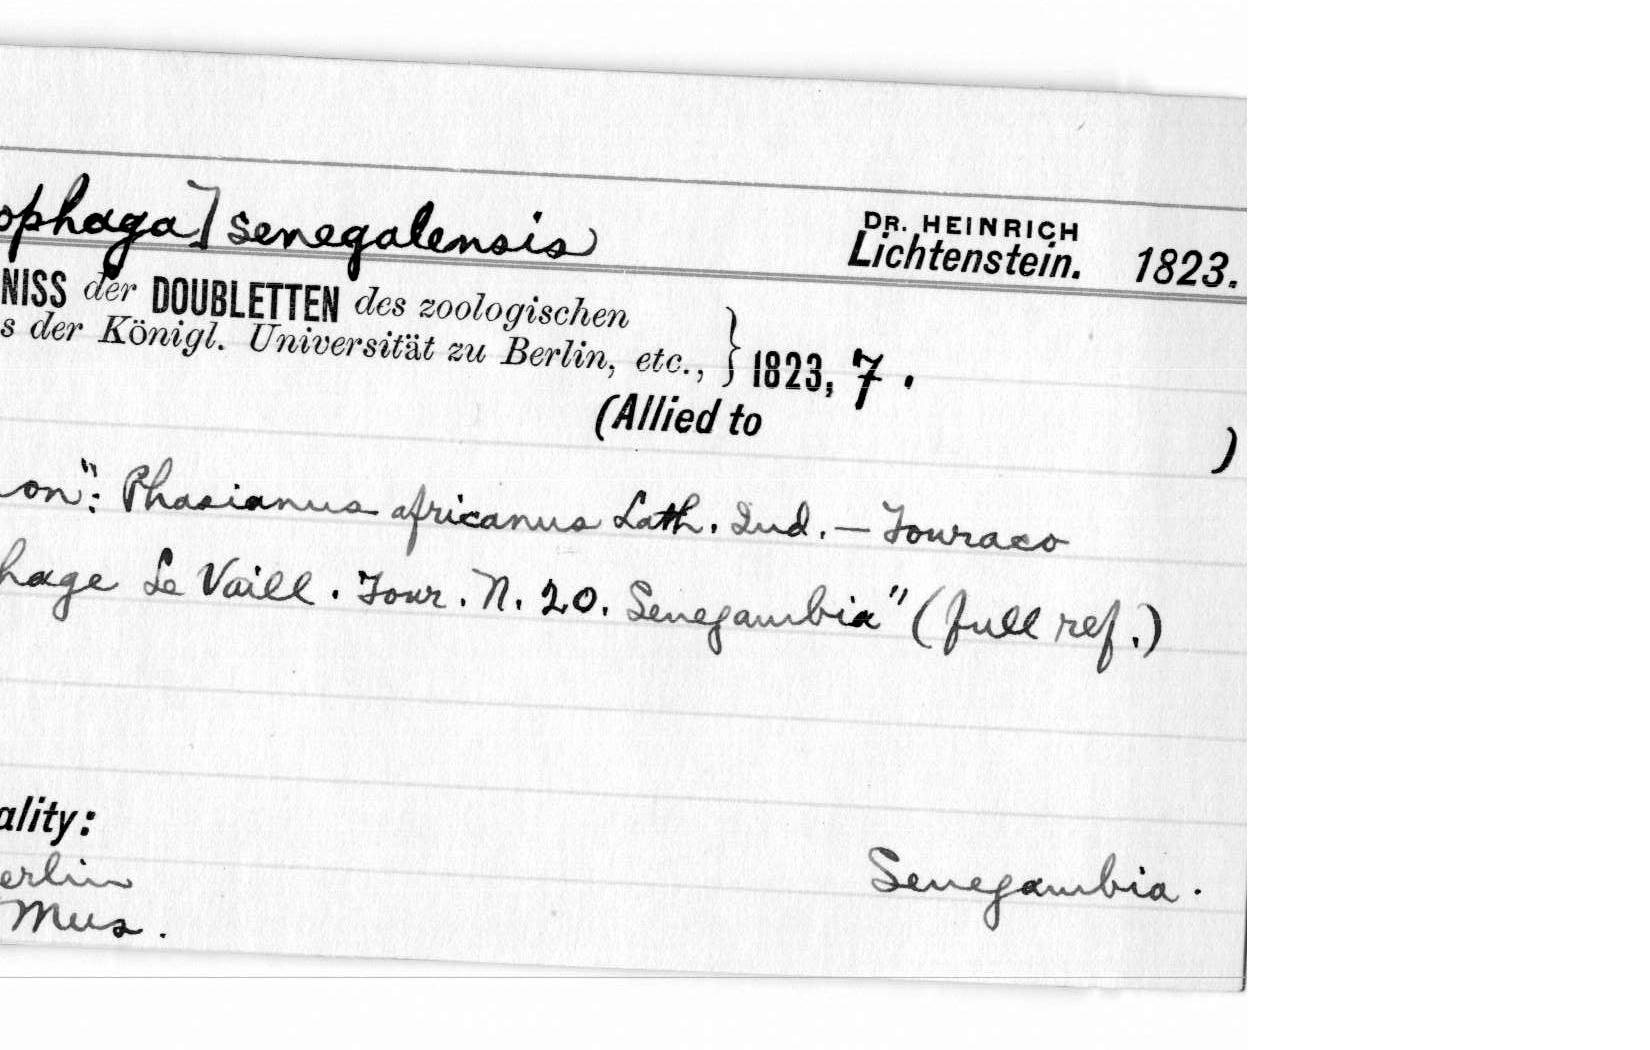 ophaga] senegalensis DR. HEINRICH Lichtenstein. 1823.
NISS der DOUBLETTEN des zoologischen
s der Königl. Universität zu Berlin, etc., } 1823, 7.
(Allied to )
on": Phasianus africanus Lath. Ind. — Touraco
hage Le Vaill. Tour. N. 20. Senegambia" (full ref.)
ality:
erlin Senegambia.
Mus.